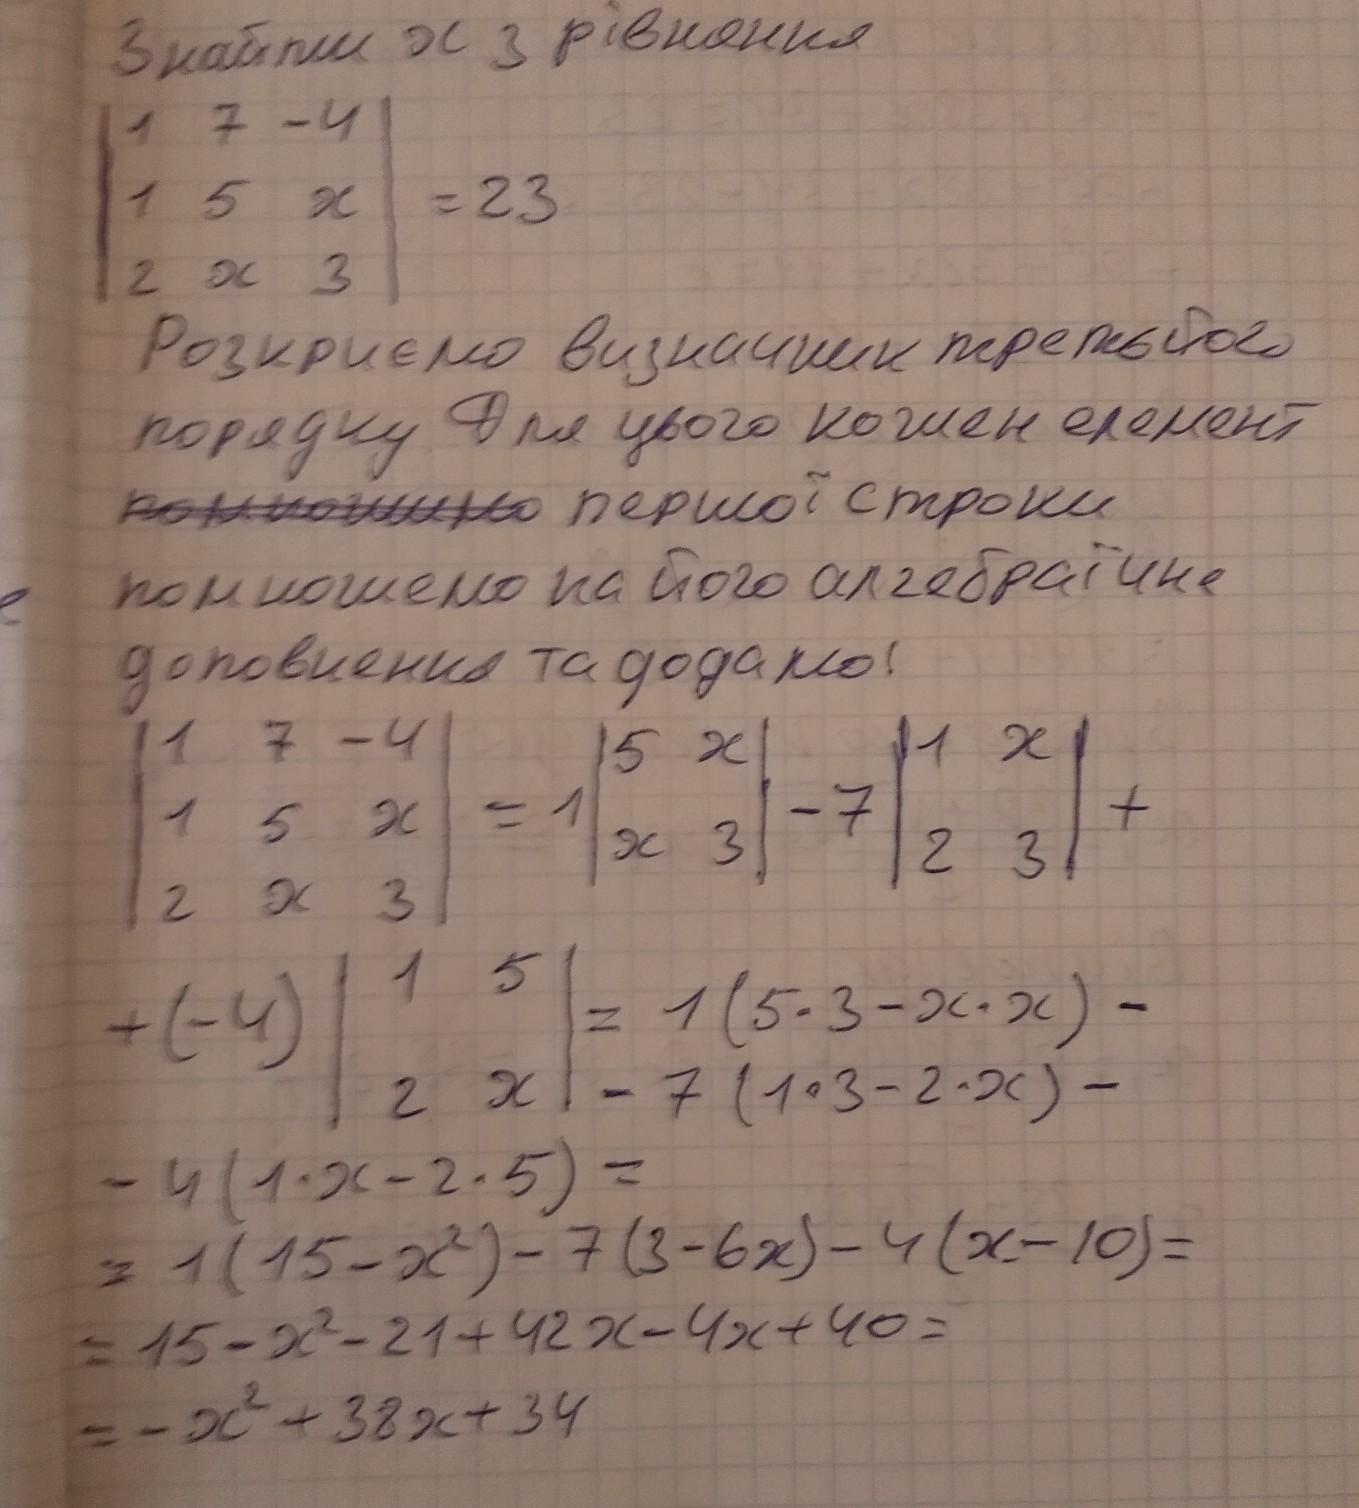 Знайти x з рівняння
|1 7 -4|
|1 5 x| = 23
|2 x 3|
Розкриємо визначник третьйого
порядку Для цього кожен елемент
помножимо першої строки
помножемо на його алгебраїчне
доповнення та додамо!
|1 7 -4|
|1 5 x| = 1 |5 x| - 7 |1 x| +
|2 x 3| |x 3| |2 3|
+(-4) |1 5| = 1(5·3-x·x) -
|2 x| - 7(1·3-2·x) -
- 4(1·x-2·5) =
= 1(15-x²)-7(3-6x)-4(x-10)=
= 15-x²-21+42x-4x+40=
= -x²+38x+34